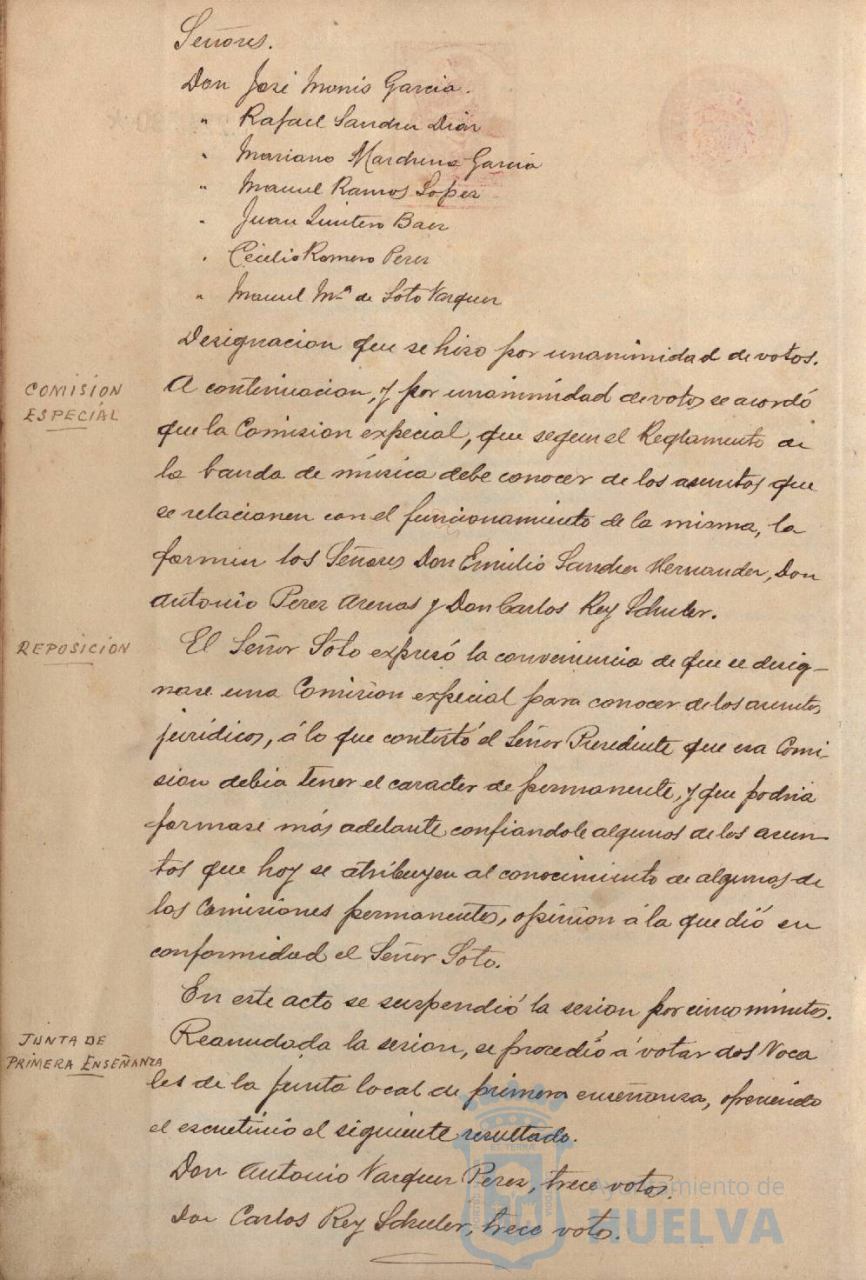 Señores.
Don José Monis Garcia.
" Rafael Sandra Diaz
" Mariano Marchena Garcia
" Manuel Ramos Lopez
" Juan Quintero Baez
" Cecilio Romero Perez
" Manuel Mª de Soto Vazquez
Designacion que se hizo por unanimidad de votos.
COMISION
ESPECIAL
A continuacion, y por unanimidad de votos se acordó
que la Comision especial, que segun el Reglamento de
la banda de música debe conocer de los asuntos que
se relacionen con el funcionamiento de la misma, la
formen los Señores Don Emilio Hernandez, Don
Antonio Perez Arenas y Don Carlos Rey Schuler.
REPOSICIÓN
El Señor Soto expresó la conveniencia de que se desig-
nase una Comision especial para conocer de los asuntos
jurídicos, á lo que contestó el Señor Presidente que esa Comi-
sion debia tener el caracter de permanente, y que podria
formarse más adelante confiandole algunos de los asun-
tos que hoy se atribuyen al conocimiento de algunas de
las Comisiones permanentes, opinion á la que dió su
conformidad el Señor Soto.
En este acto se suspendió la sesion por cinco minutos.
JUNTA DE
PRIMERA ENSEÑANZA
Reanudada la sesion, se procedió á votar dos Voca
les de la Junta local de primera enseñanza, ofreciendo
el escrutinio el siguiente resultado.
Don Antonio Vazquez Perez, trece votos.
Don Carlos Rey Schuler, trece votos.
Ayuntamiento de
HUELVA